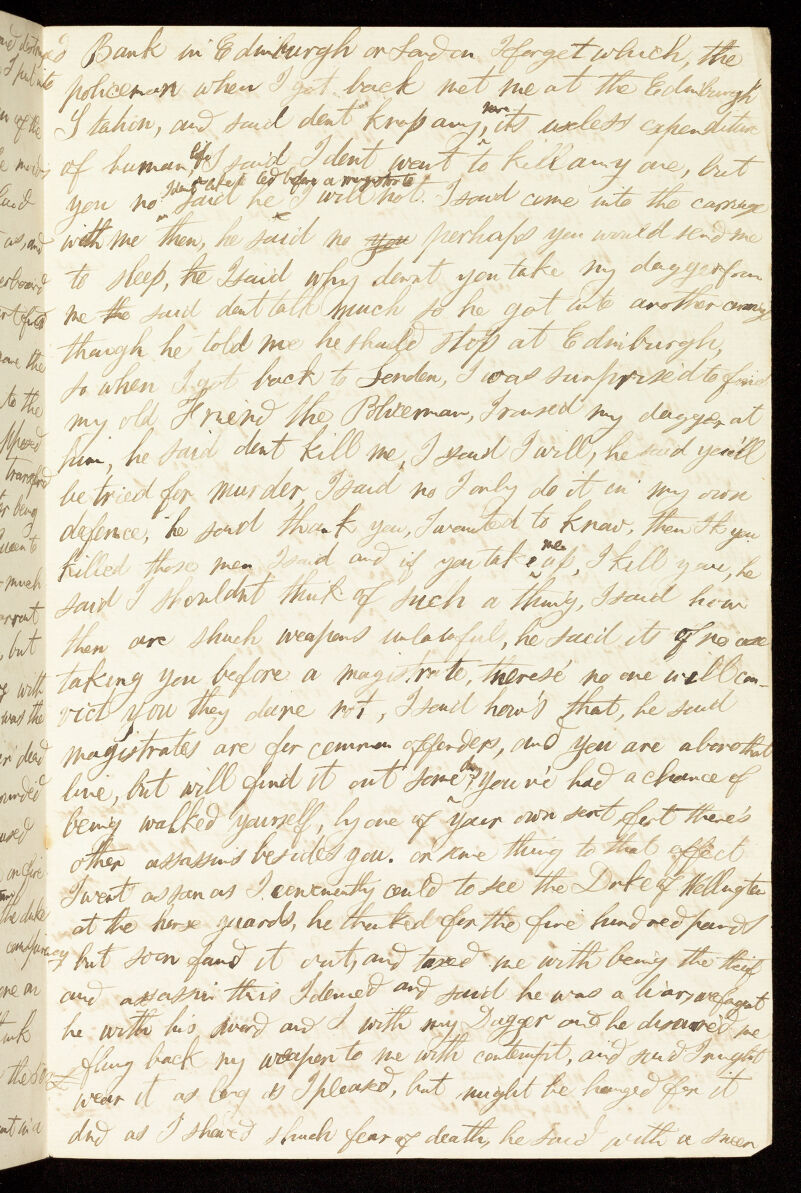 Bank in Edinburgh or London I forget which, the
policeman when I got back met me at the Edinburgh
Station, and said dont knap any more, its useless expenditure
of human life, I said I dont want to kill any one, but
you no I dont take led before a magistrate said he I will not. I said come into the carriage
with me then, he said no you perhaps you would send me
to sleep, he I said why dernt you take my dagger from
me the said dont talk much so he got into another carriage
though he told me he should stop at Edinburgh,
so when I got back to London, I was surprised to find
my old Friend the Policeman, I raised my dagger at
him, he said dont kill me, I said I will, he said you'll
be tried for murder, I said no I only do it in my own
defence, he said thank you, I wanted to know, then you
killed those men I said and if you take me up, I kill you, he
said I shouldnt think of such a thing, I said how
then are shuch weapons unlawful, he said its of no use
taking you before a magistrate, therese' no one will con-
vict you they dare not, I said how's that, he said
magistrates are for common offenders, and you are above that
line, but will find it out some day, you've had a chance of
being walked yourself, by one of your own sort, for there's
other assassins besides you. or some thing to that effect
I went as soon as I conveniently could to see the Duke of Wellington
at the horse guards, he thanked for the five hundred pounds
but soon found it out, and taxed me with being the thief
and assassin this I denied and said he was a liar, we fought
he with his sword and I with my Dagger and he disarmed me
flung back my weapon to me with contempt, and said I might
wear it as long as I pleased, but might be hanged for it
and as I shewed shuch fear of death, he said with a sneer